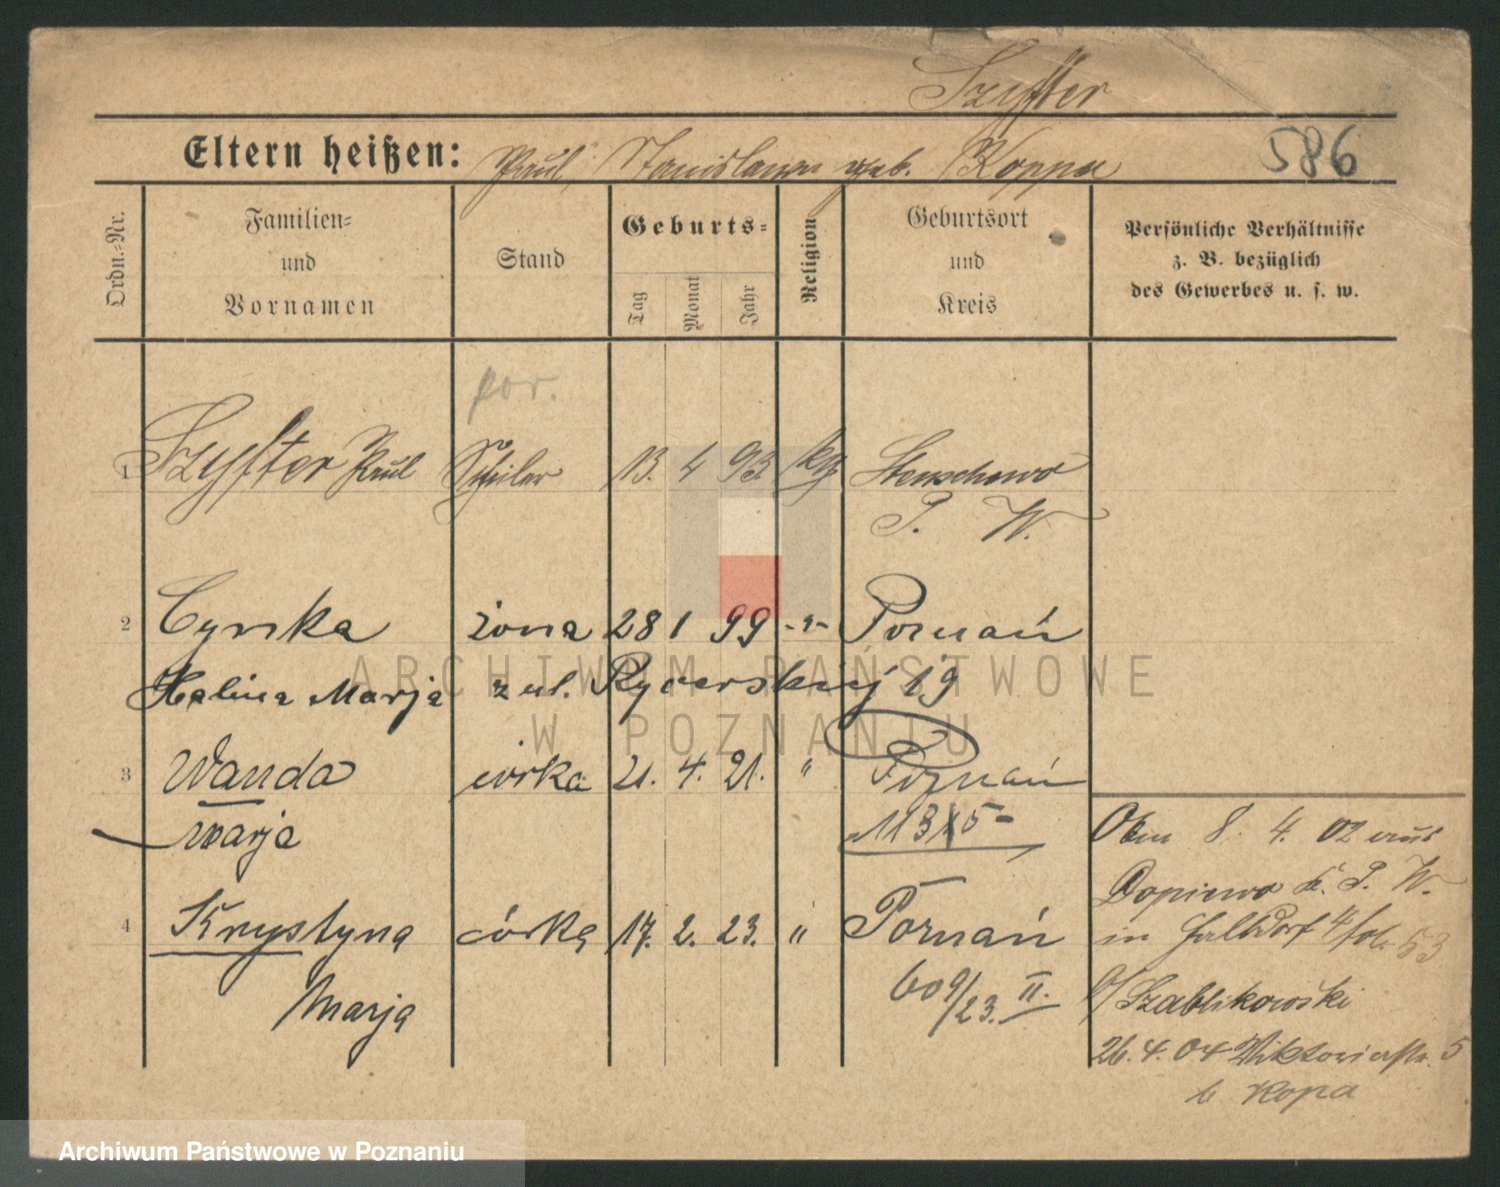 Szyfter
Eltern heißen: Paul, Stanislawa geb. Koppa 586
Ordn.-Nr.
Familien-
und
Vornamen
Stand
Geburts-
Tag
Monat
Jahr
Religion
Geburtsort
und
Kreis
Persönliche Verhältnisse
z. B. bezüglich
des Gewerbes u. s. w.
por.
1 Szyfter Paul Schüler 13. 4 93. kg Stenschewo
P. W.
2 Cynka żona 28 1 99 -"- Poznań
Halina Marja z ul. Rycerskiej 19
3 Wanda córka 21. 4. 21. " Poznań
Marja
4 Krystyna córka 17. 2. 23. " Poznań
Marja 609/23. II.
8. 4. 02 aus
Dopiewo K. P. W.
in 53
b/ Szablikowski
26. 4. 04 Viktoriastr. 5
b. Kopa
ARCHIWUM PAŃSTWOWE
W POZNANIU
Archiwum Państwowe w Poznaniu